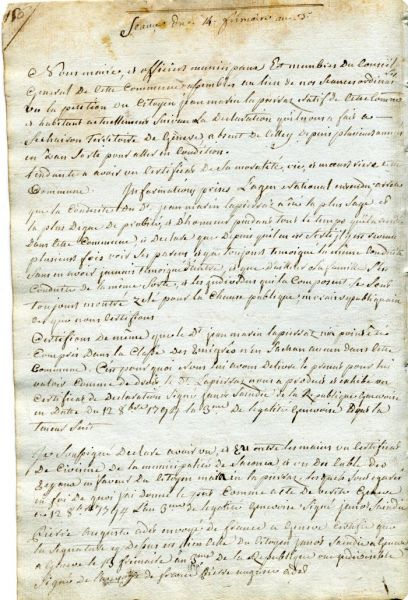 Seance du 14 frimaire an 3e
Nous maire, et officiers municipaux Et membres Du Conseil
General De Cette Commune assemblés au lieu de nos seances ordinaires
vu la petition du Citoyen jean marin lapierraz natif de Cette Commune
et habitant actuellement suivant La Declaration qu'il nous a fait a
Sechairon Territoire de Geneve absent de depuis plusieurs années
en Etant Sorti pour aller en Condition.
tendante a avoir un Certificat De Sa moralité, vie, et moeurs riere cette
Commune. Informations prises L'agent National entendu
que la Conduite Du Dt jean marin lapierraz a été la plus Sage et
la plus Digne de probité, et D'honneur pendant tout le temps qu'il a
Dans Cette Commune, et Declare que Depuis qu'il en est Sorti, il est revenu
plusieurs fois voir Ses parens et que toujours temoigné la même Conduite
Sans en avoir jamais temoigné et que la famille S'est
Conduite De la meme Sorte, et les individus qui la Composent Se Sont
toujours montré zelé pour la Chose publique
Ce que nous Certifions
Certifions de meme que le Dt jean marin lapierraz n'es point
Compris Dans la Classe Des Emigrés n'en Sachant aucun dans Cette
Commune. C'est pourquoi nous lui avons Delivré le present pour lui
valoir Comme de droit le Dt Lapierraz nous a produit et exhibé un
Certificat de Declaration Signé janot Sandie De la Republique Genevoise
en Datte du 12 8bre 1794 la 3me De legalité Genevoise Dont la
teneur Suit
Je Soussigné Declare avoir vu, et Eu entre les mains un Certificat
De Civisme De la municipalité de Saconex et un Du Cable des
en faveur Du Citoyen marin la pierraz lesquels Sont egarés
en foi De quoi j'ai donné le pnt Comme acte de verité Geneve
ce 12 8bre 1794 L'an 3me de legalité Genevoise Signé janot Sandie
Pierre auguste adet envoyé de france a Geneve Certifie que
la Signature cy dessus est bien Celle Du Citoyen janot Sandie a Geneve
a Geneve le frimaire an 3me de la Republique une indivisible
Signé de france Pierre auguste adet